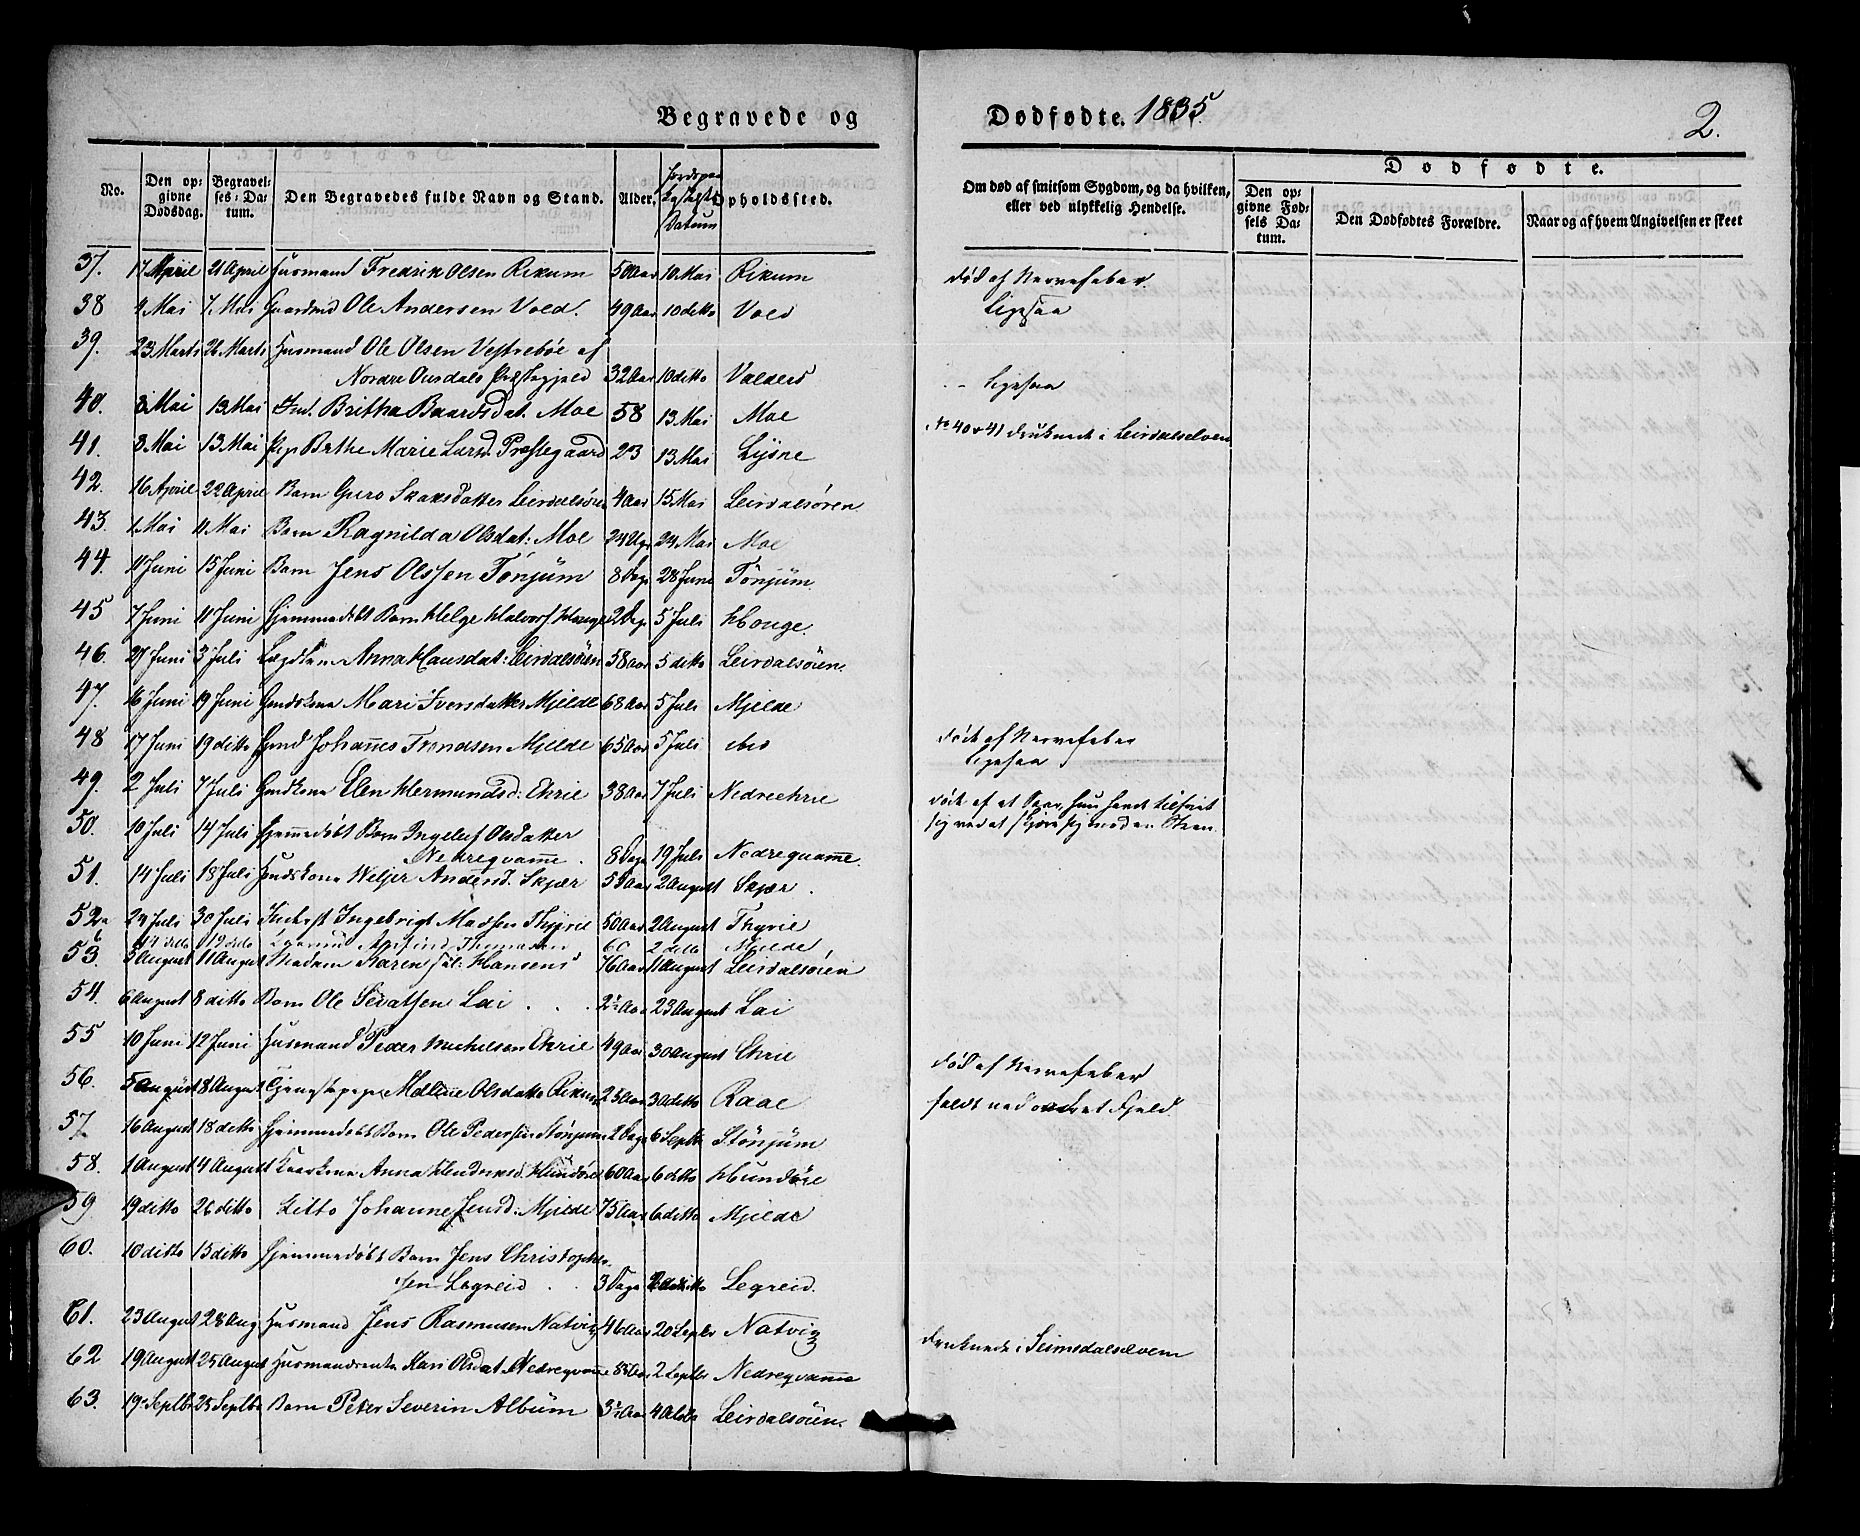 Begravede og Dødfødte. 1835. 2.
No. Den opgivne Dødsdag. Begravelses-Datum. Den Begravedes fulde Navn og Stand. Alder. Jordspaakastelses Datum Opholdssted. Om død af smitsom Sygdom, og da hvilken, eller ved ulykkelig Hendelse. Dødfødte. Den opgivne Fødsels Datum. Den Dødfødtes Forældre. Naar og af hvem Angivelsen er skeet
37. 17 April 21 April Husmand Fredrik Olsen Rikum 50 Aar 10 Mai Rikum død af Nervefeber
38 4 Mai 7. Mai Gaardmd Ole Andersen Vold. 49 Aar 10 ditto Vold Ligesaa
39. 23 Marts 26 Marts Husmand Ole Olsen Vestrebøe af
Nordre Ourdals Præstegjeld 32 Aar 10 ditto Valders -- Ligesaa
40. 8 Mai 13 Mai Ind. Britha Baardsdat. Moe 58 13 Mai Moe
41. 8 Mai 13 Mai Pige Brthe Marie Larsd. Præstegaard 23 13 Mai Lysne No 40 & 41 druknede i Leirdalselven
42. 16 April 22 April Barn Guro Skaksdatter Leirdalsøren 4 Aar 15 Mai Leirdalsøren
43. 1. Mai 11. Mai Barn Ragnilda Olsdat: Moe 24 Uger 24 Mai Moe
44. 11 Juni 15 Juni Barn Jens Olssen Tønjum 8 Dage 28 Juni Tønjum.
45 7 Juni 11 Juni Hjemmedøbt Barn Helge Halvors. Houge 2 Dage 5 Juli Houge.
46. 27 Juni 3 Juli Lægdkone Anna Hansdat: Leirdalsøren 58 Aar 5 ditto Leirdalsøren
47. 16 Juni 19 Juni Gmdskone Mari Iversdatter Mjelde 68 Aar 5 Juli Mjelde
48 17 Juni 19 ditto Gmd Johannes Trondsen Mjelde 65 Aar 5 Juli ibid død af Nervefeber
Ligesaa
49. 2 Juli 7 Juli Gmdkone Elen Hermundsd: Ehrie 38 Aar 7 Juli Nedreehrie død af et Saar, hun havde tilføiet
sig ved at skjære sig med en Kniv
50. 10 Juli 14 Juli Hjemmedøbt Barn Ingeleif Olsdatter
Nedreqvamme. 8 Dage 19 Juli Nedreqvamme.
51. 14 Juli 18 Juli Gmdskone Weljer Andersd. Skjær 55 Aar 2 August Skjær.
52a 24 Juli 30 Juli Inderst Ingebrigt Madsen Thyrie 50 Aar 2 August Thyrie
b 14 dito 19 dito Thomasen 60 2 dito Mjelde
53. 5 August 11 August Madam Karen sal: Hansens 76 Aar 11 August Leirdalsøren
54. 6 August 8 ditto Barn Ole Sevatsen Lai . . 2½ Aar 23 August Lai
55 10 Juni 12 Juni Husmand Peder Michelsen Ehrie 49 Aar 30 August Ehrie død af Nervefeber
56. 5 August 8 August Tjenestepige Malene Olsdatter Rikum 25 Aar 30 ditto Raae faldt ned over et Fjeld
57. 16 August 18 ditto Hjemmedøbt Barn Ole Pedersen Stønjum 2 Dage 6 Septbr Stønjum
58. 1 August 4 August Kaarkone Anna Hendriksd. Hundere 60 Aar 6 ditto Hundere
59 19 ditto 26 ditto Ditto Johanne Jensd: Mjelde 75 Aar 6 ditto Mjelde
60. 10 ditto 15 ditto Hjemmedøbt Barn Jens Christopher-
sen Legreid . . 3 Dage ditto Legreid.
61. 23 August 28 Aug. Husmand Jens Rasmusen Natvig 46 Aar 20 Septbr Natvig druknede i Seimsdalselven
62 19 August 25 August Husmandsenke Kari Olsdat. Nedreqvamme Aar 2 Septbr Nedreqvamme
63. 19. Septbr 25 Septbr Barn Peter Severin Album 3½ Aar 4 Octbr Leirdalsøren.